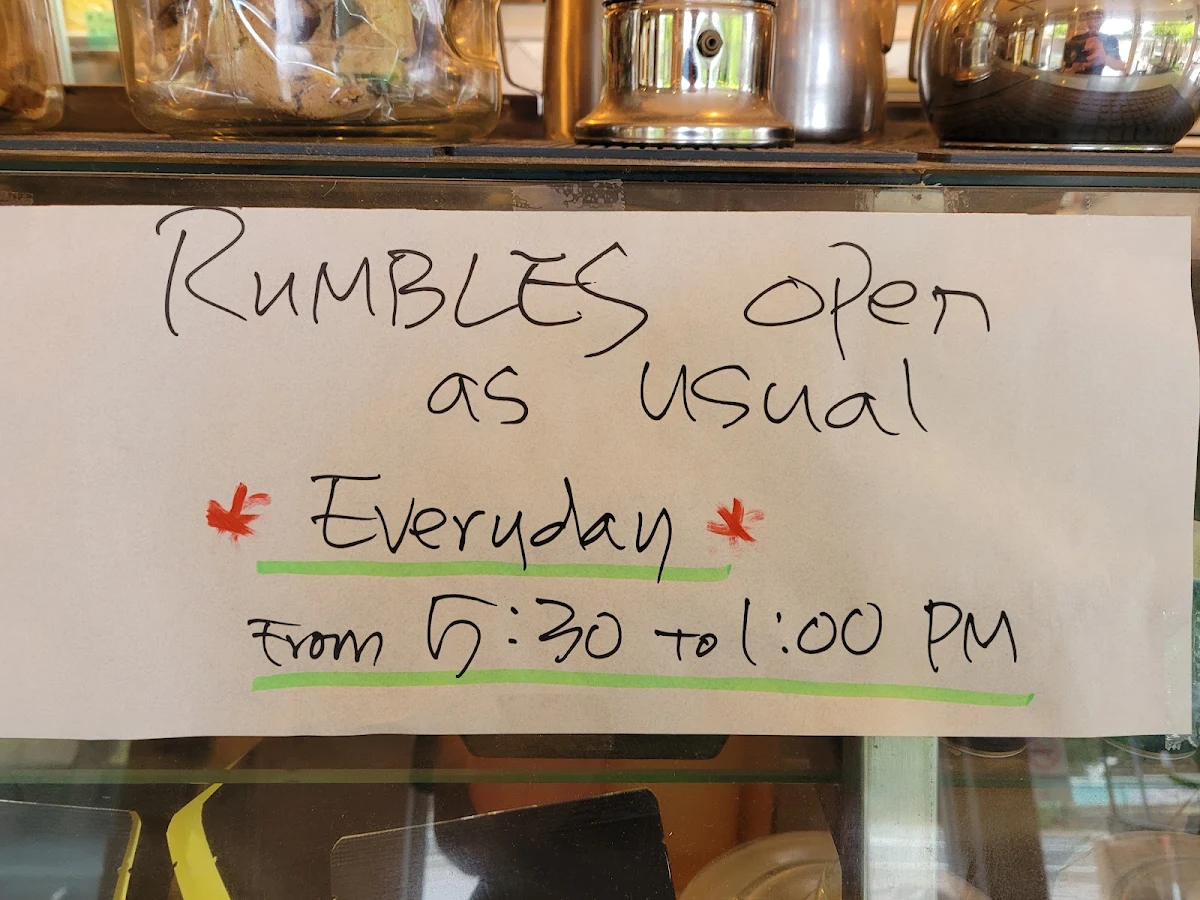 RUMBLES open
as usual
Everyday
From 5:30 to 1:00 PM